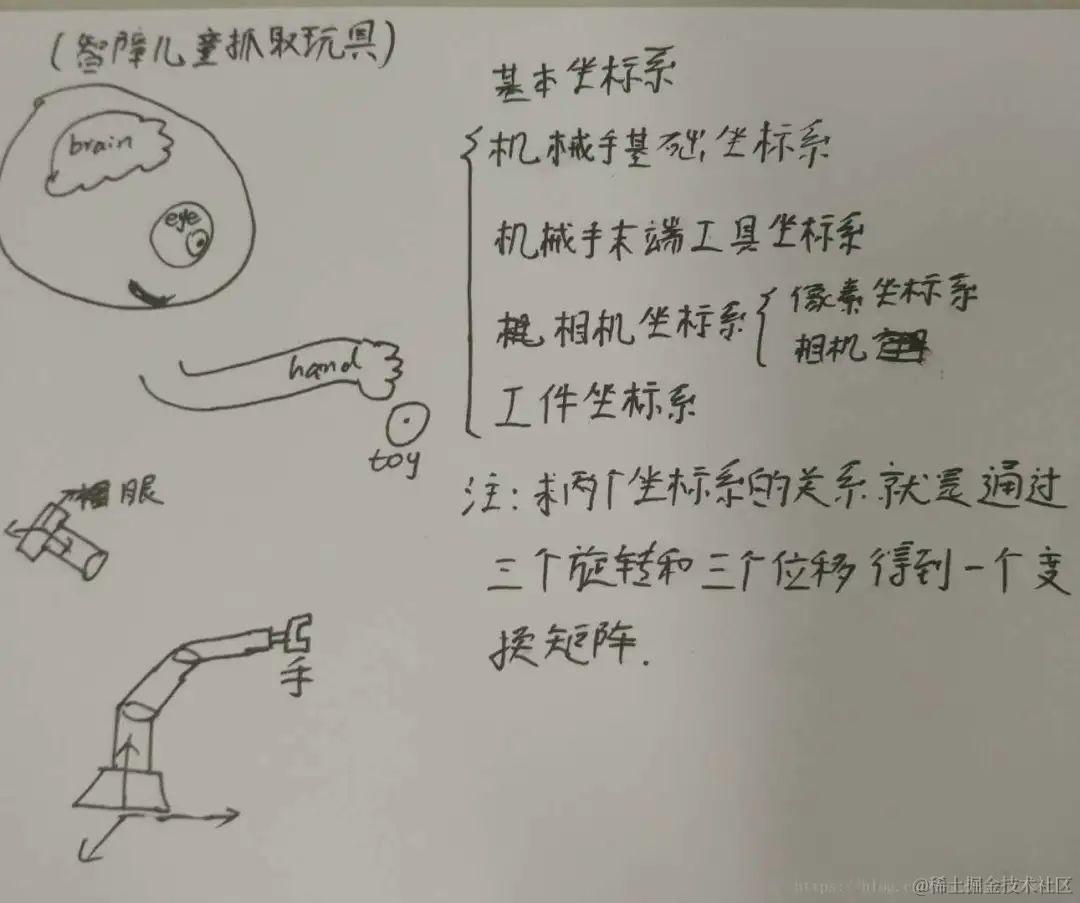 (智障儿童抓取玩具)
brain
eye
hand
toy
眼
手
基本坐标系
机械手基础坐标系
机械手末端工具坐标系
相机坐标系
像素坐标系
相机
工件坐标系
注:求两个坐标系的关系就是通过
三个旋转和三个位移得到一个变
换矩阵.
https://blog.c
@稀土掘金技术社区